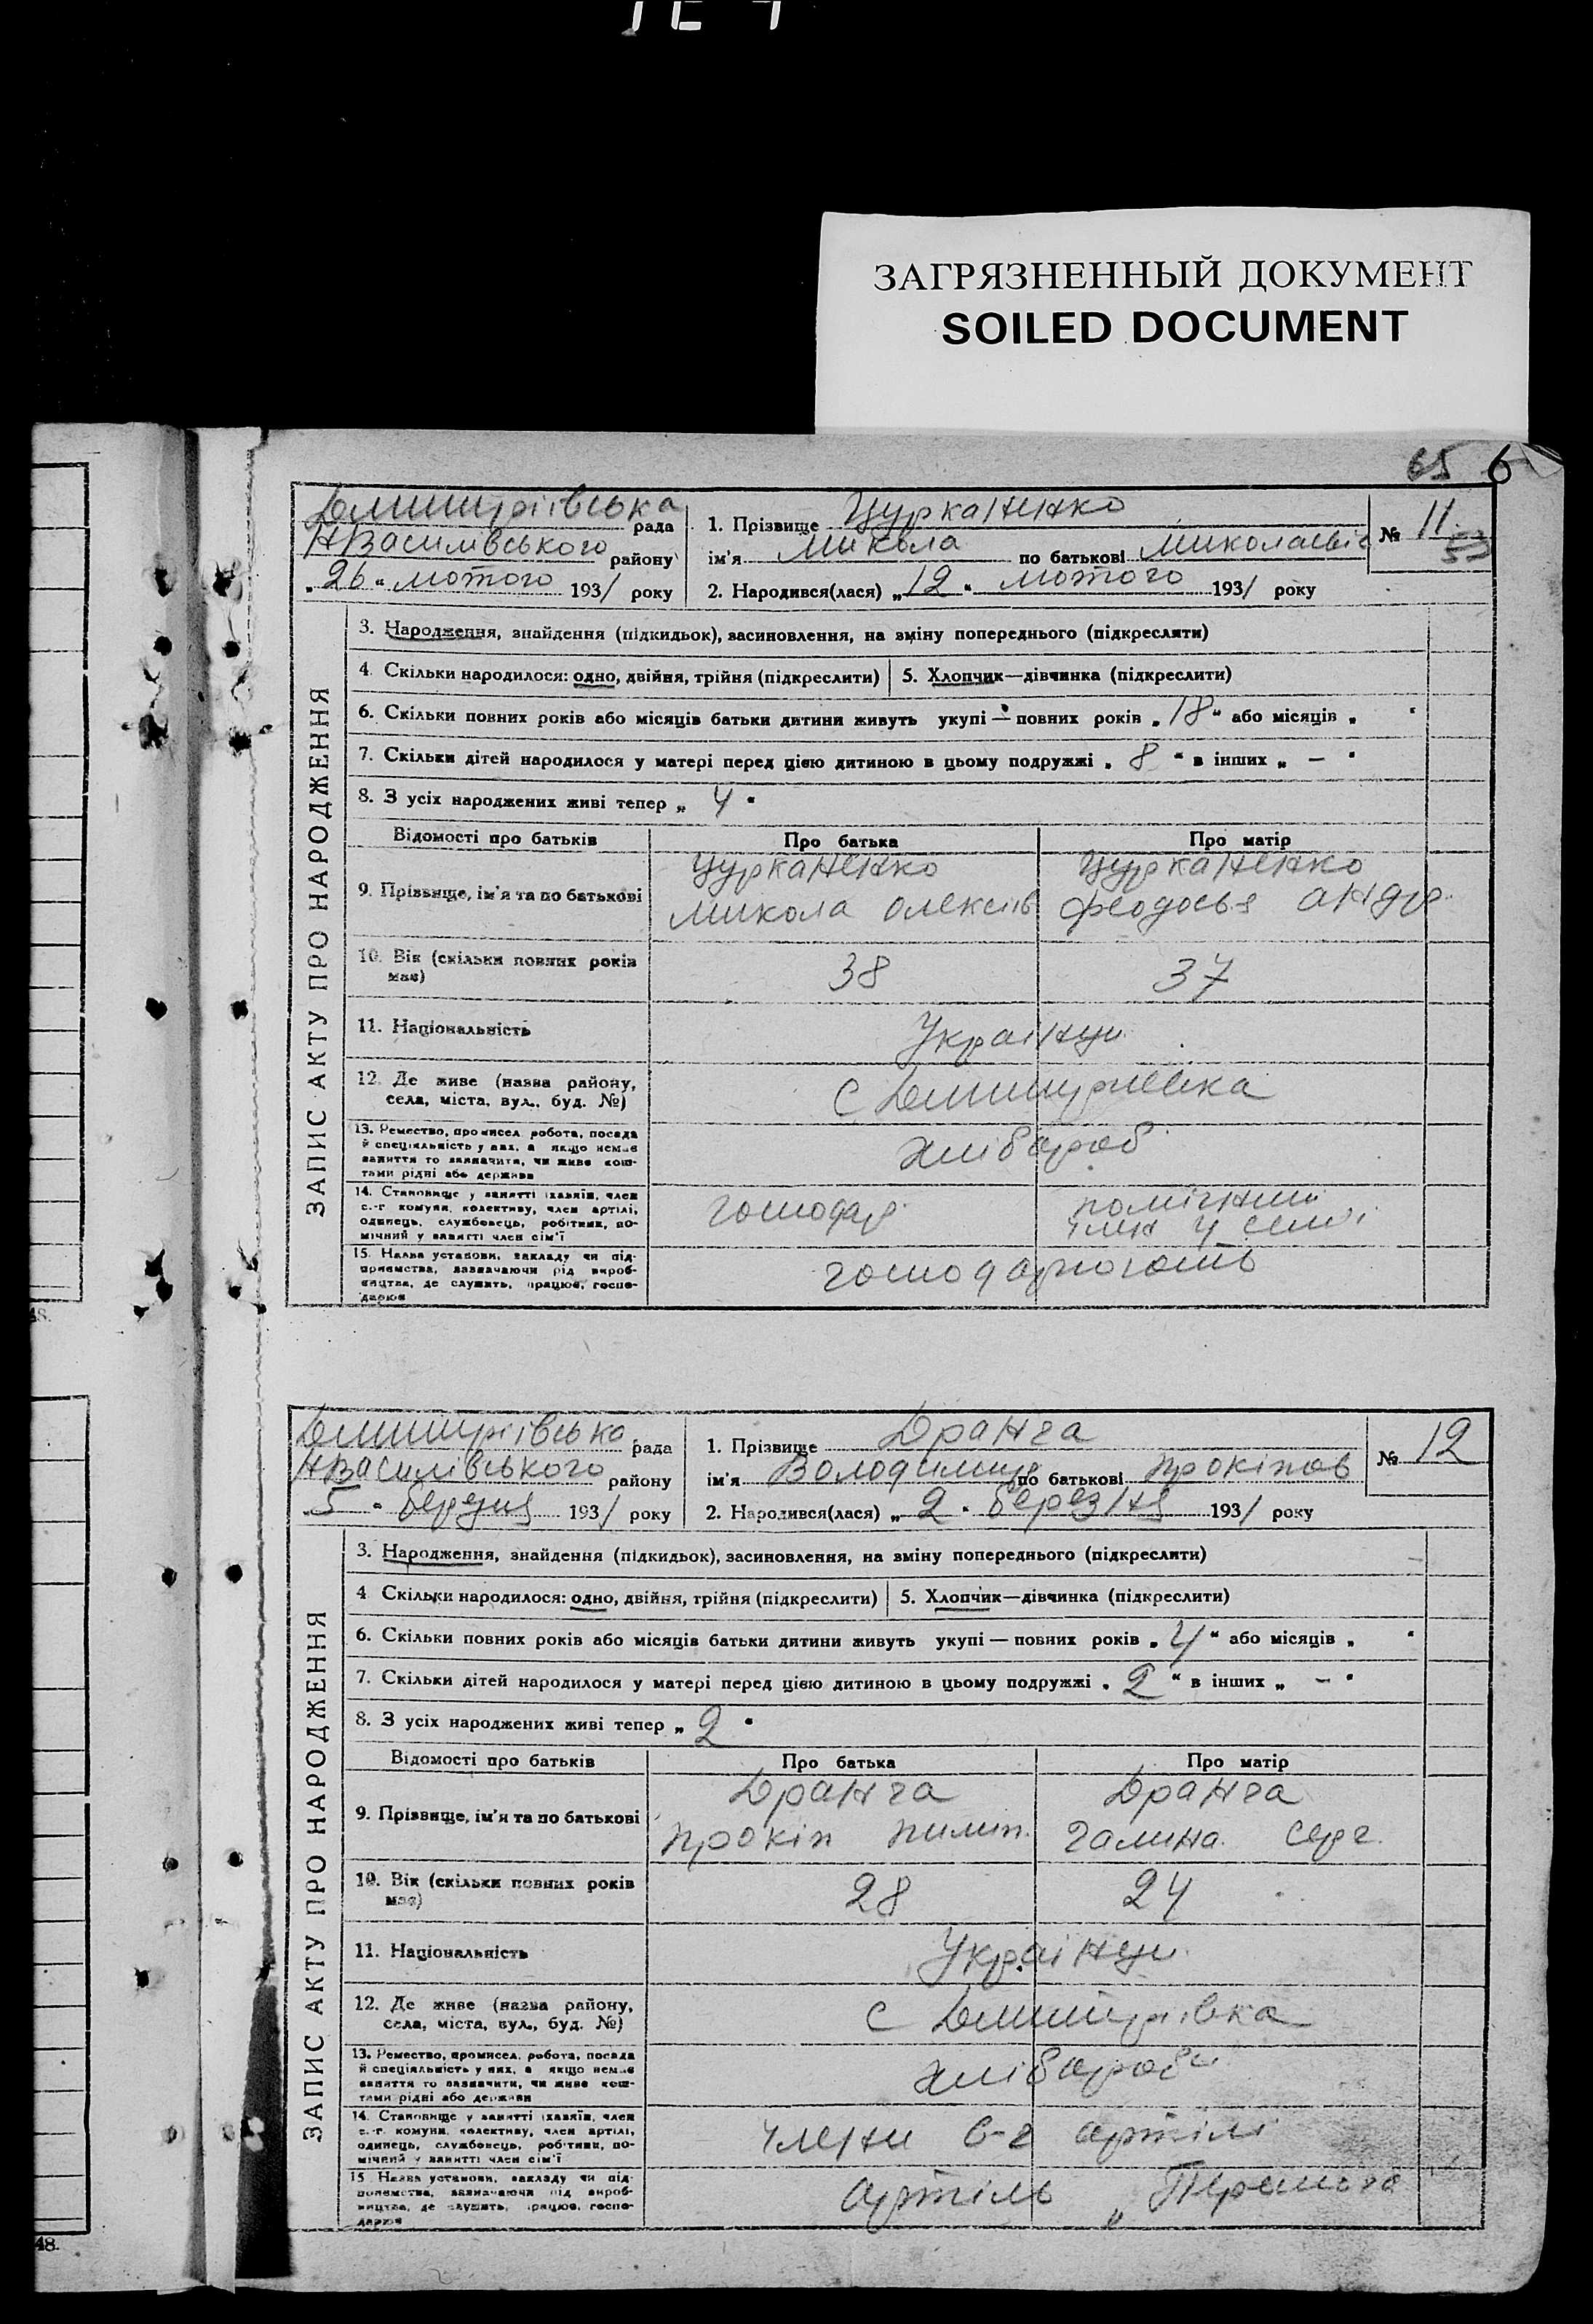 ЗАГРЯЗНЕННЫЙ ДОКУМЕНТ
SOILED DOCUMENT
65 6
Дмитріївська рада
НВасилівського району
„26“ лютого 1931 року
1. Прізвище Цурканенко
ім'я Микола по батькові Миколаєвіч
2. Народився(лася) „12“ лютого 1931 року
№ 11
53
ЗАПИС АКТУ ПРО НАРОДЖЕННЯ
3. Народження, знайдення (підкидьок), засиновлення, на зміну попереднього (підкреслити)
4. Скільки народилося: одно, двійня, трійня (підкреслити) 5. Хлопчик—дівчинка (підкреслити)
6. Скільки повних років або місяців батьки дитини живуть укупі — повних років „18“ або місяців „ “
7. Скільки дітей народилося у матері перед цією дитиною в цьому подружжі „8“ в інших „ — “
8. З усіх народжених живі тепер „4“
Відомості про батьків Про батька Про матір
9. Прізвище, ім'я та по батькові
Цурканенко Цурканенко
Микола Олексіїв Феодосья Андр.
10. Вік (скільки повних років має) 38 37
11. Національність Українци
12. Де живе (назва району, села, міста, вул., буд. №) с Дмитриевка
13. Ремество, промисел, робота, посада
й спеціяльність у них, а якщо немає
заняття то зазначити, чи живе кош-
тами рідні або держави
хлібороб
14. Становище у занятті (хазяїн, член
с.-г. комуни, колективу, член артілі,
одинець, службовець, робітник, по-
мічний у занятті член сім'ї
господар помічний
член у семї
15. Назва установи, закладу чи під-
приємства, зазначаючи рід вироб-
ництва, де служить, працює, госпо-
дарює
господарюють
Дмитріївська рада
НВасилівського району
„5“ березня 1931 року
1. Прізвище Дранга
ім'я Володимир по батькові Прокіпов
2. Народився(лася) „2“ березня 1931 року
№ 12
ЗАПИС АКТУ ПРО НАРОДЖЕННЯ
3. Народження, знайдення (підкидьок), засиновлення, на зміну попереднього (підкреслити)
4 Скільки народилося: одно, двійня, трійня (підкреслити) 5. Хлопчик—дівчинка (підкреслити)
6. Скільки повних років або місяців батьки дитини живуть укупі — повних років „4“ або місяців „ “
7. Скільки дітей народилося у матері перед цією дитиною в цьому подружжі „2“ в інших „ — “
8. З усіх народжених живі тепер „2“
Відомості про батьків Про батька Про матір
9. Прізвище, ім'я та по батькові
Дранга Дранга
Прокіп Пилип. Галина Серг.
10. Вік (скільки повних років має) 28 24
11. Національність Українци
12. Де живе (назва району, села, міста, вул., буд. №) с Дмитрівка
13. Ремество, промисел, робота, посада
й спеціяльність у них, а якщо немає
заняття то зазначити, чи живе кош-
тами рідні або держави
хлібороби
14. Становище у занятті (хазяїн, член
с.-г. комуни, колективу, член артілі,
одинець, службовець, робітник, по-
мічний у занятті член сім'ї
члени с-г артілі
15 Назва установи, закладу чи під-
приємства, зазначаючи рід вироб-
ництва, де служить, працює, госпо-
дарює
артіль „Перемога
48.
48.